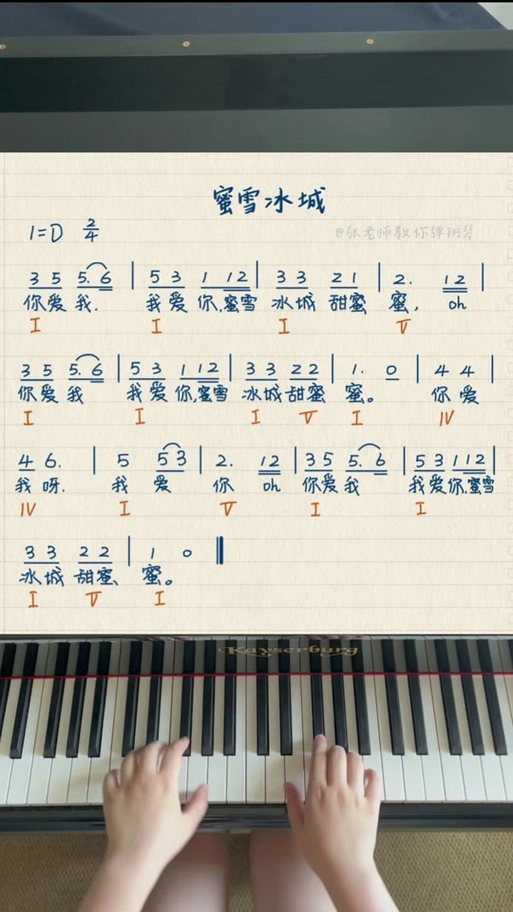 蜜雪冰城
1=D 2/4
@张老师教你弹钢琴
3 5 5. 6 | 5 3 1 12 | 3 3 2 1 | 2. 12 |
你爱我. 我爱你,蜜雪 冰城 甜蜜 蜜, oh
I I I V
3 5 5. 6 | 5 3 1 12 | 3 3 2 2 | 1. 0 | 4 4 |
你爱我 我爱你,蜜雪 冰城甜蜜 蜜。 你爱
I I I V I IV
4 6. | 5 53 | 2. 12 | 35 5. 6 | 53 112 |
我呀. 我爱 你 oh 你爱我 我爱你,蜜雪
IV I V I I
3 3 2 2 | 1 0
冰城 甜蜜 蜜。
I V I
Kayserburg